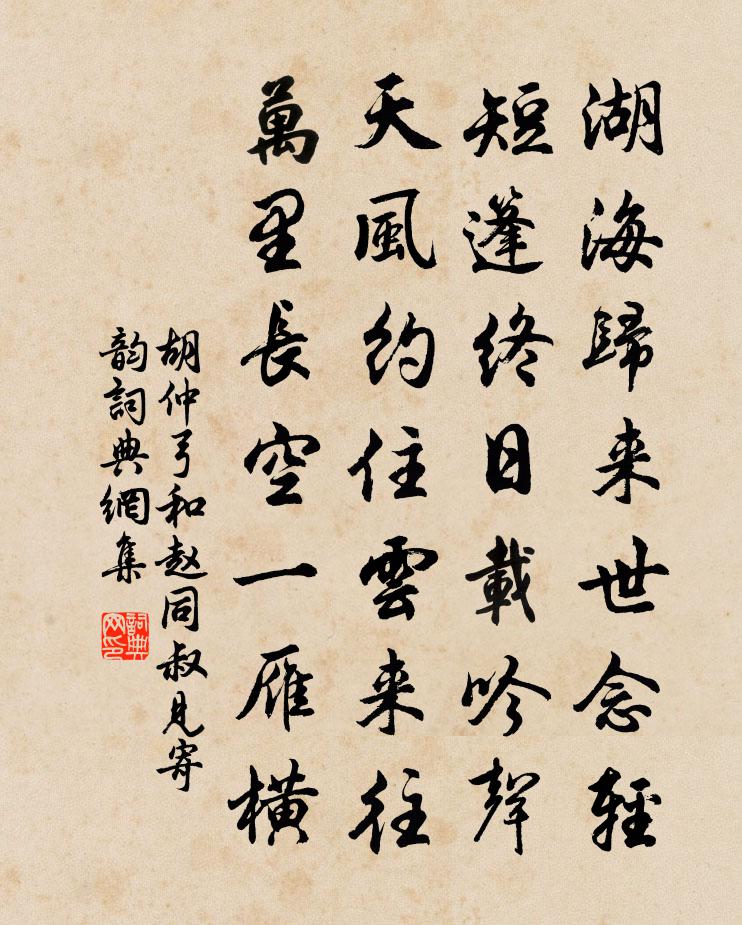 湖海歸来世念輕
短篷終日載吟聲
天風約住雲来往
萬里長空一雁橫
胡仲弓和赵同叔見寄
韵詞典網集
詞典
网印